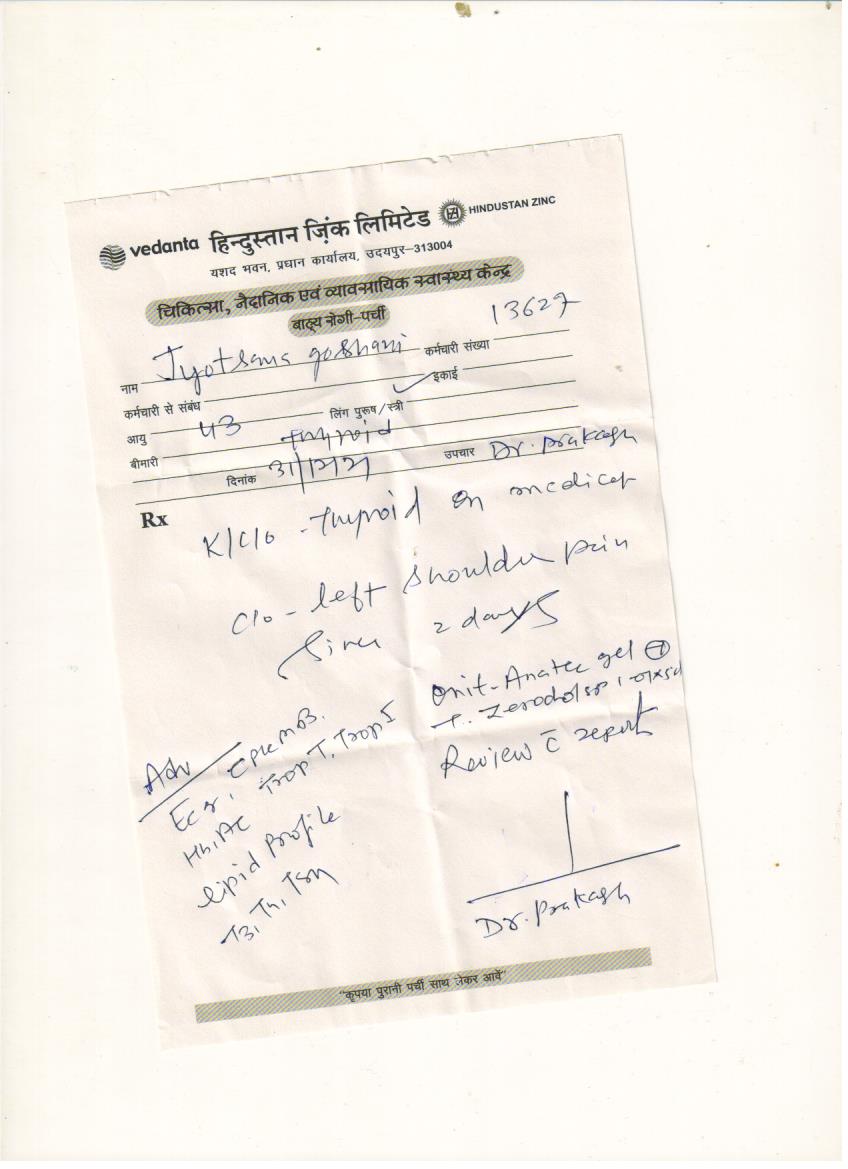 vedanta हिन्दुस्तान ज़िंक लिमिटेड HINDUSTAN ZINC
यशद भवन, प्रधान कार्यालय, उदयपुर–313004
चिकित्सा, नैदानिक एवं व्यावसायिक स्वास्थ्य केन्द्र
बाह्य रोगी-पर्ची
नाम Jyotsana goshani कर्मचारी संख्या 13627
कर्मचारी से संबंध इकाई
आयु 43 लिंग पुरूष/स्त्री ✓
बीमारी Thyroid
दिनांक 31/12/21 उपचार Dr. Prakash
Rx
K/C/o - Thyroid on
C/o - left shoulder pain
Since 2 days
Adv
CPK MB.
Trop T, Trop I
lipid profile
T3, T4, TSH
gel
T. Zerodol sp
Review c̄ report
Dr. Prakash
"कृपया पुरानी पर्ची साथ लेकर आवें"